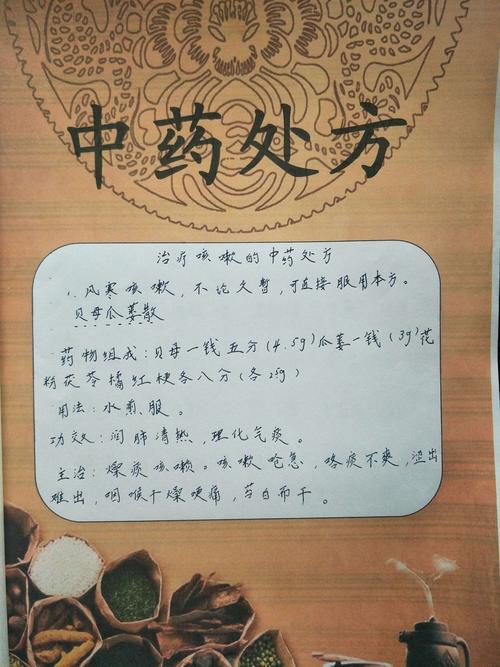 中药处方
治疗咳嗽的中药处方
1. 风寒咳嗽，不论久暂，可直接服用本方。
贝母瓜蒌散
药物组成：贝母一钱五分(4.5g)瓜蒌一钱(3g)花
粉茯苓橘红梗各八分(各25g)
用法：水煎服。
功效：润肺清热，理化气痰。
主治：燥痰咳嗽。咳嗽呛急，咯痰不爽，涩出
难出，咽喉干燥哽痛，苔白而干。